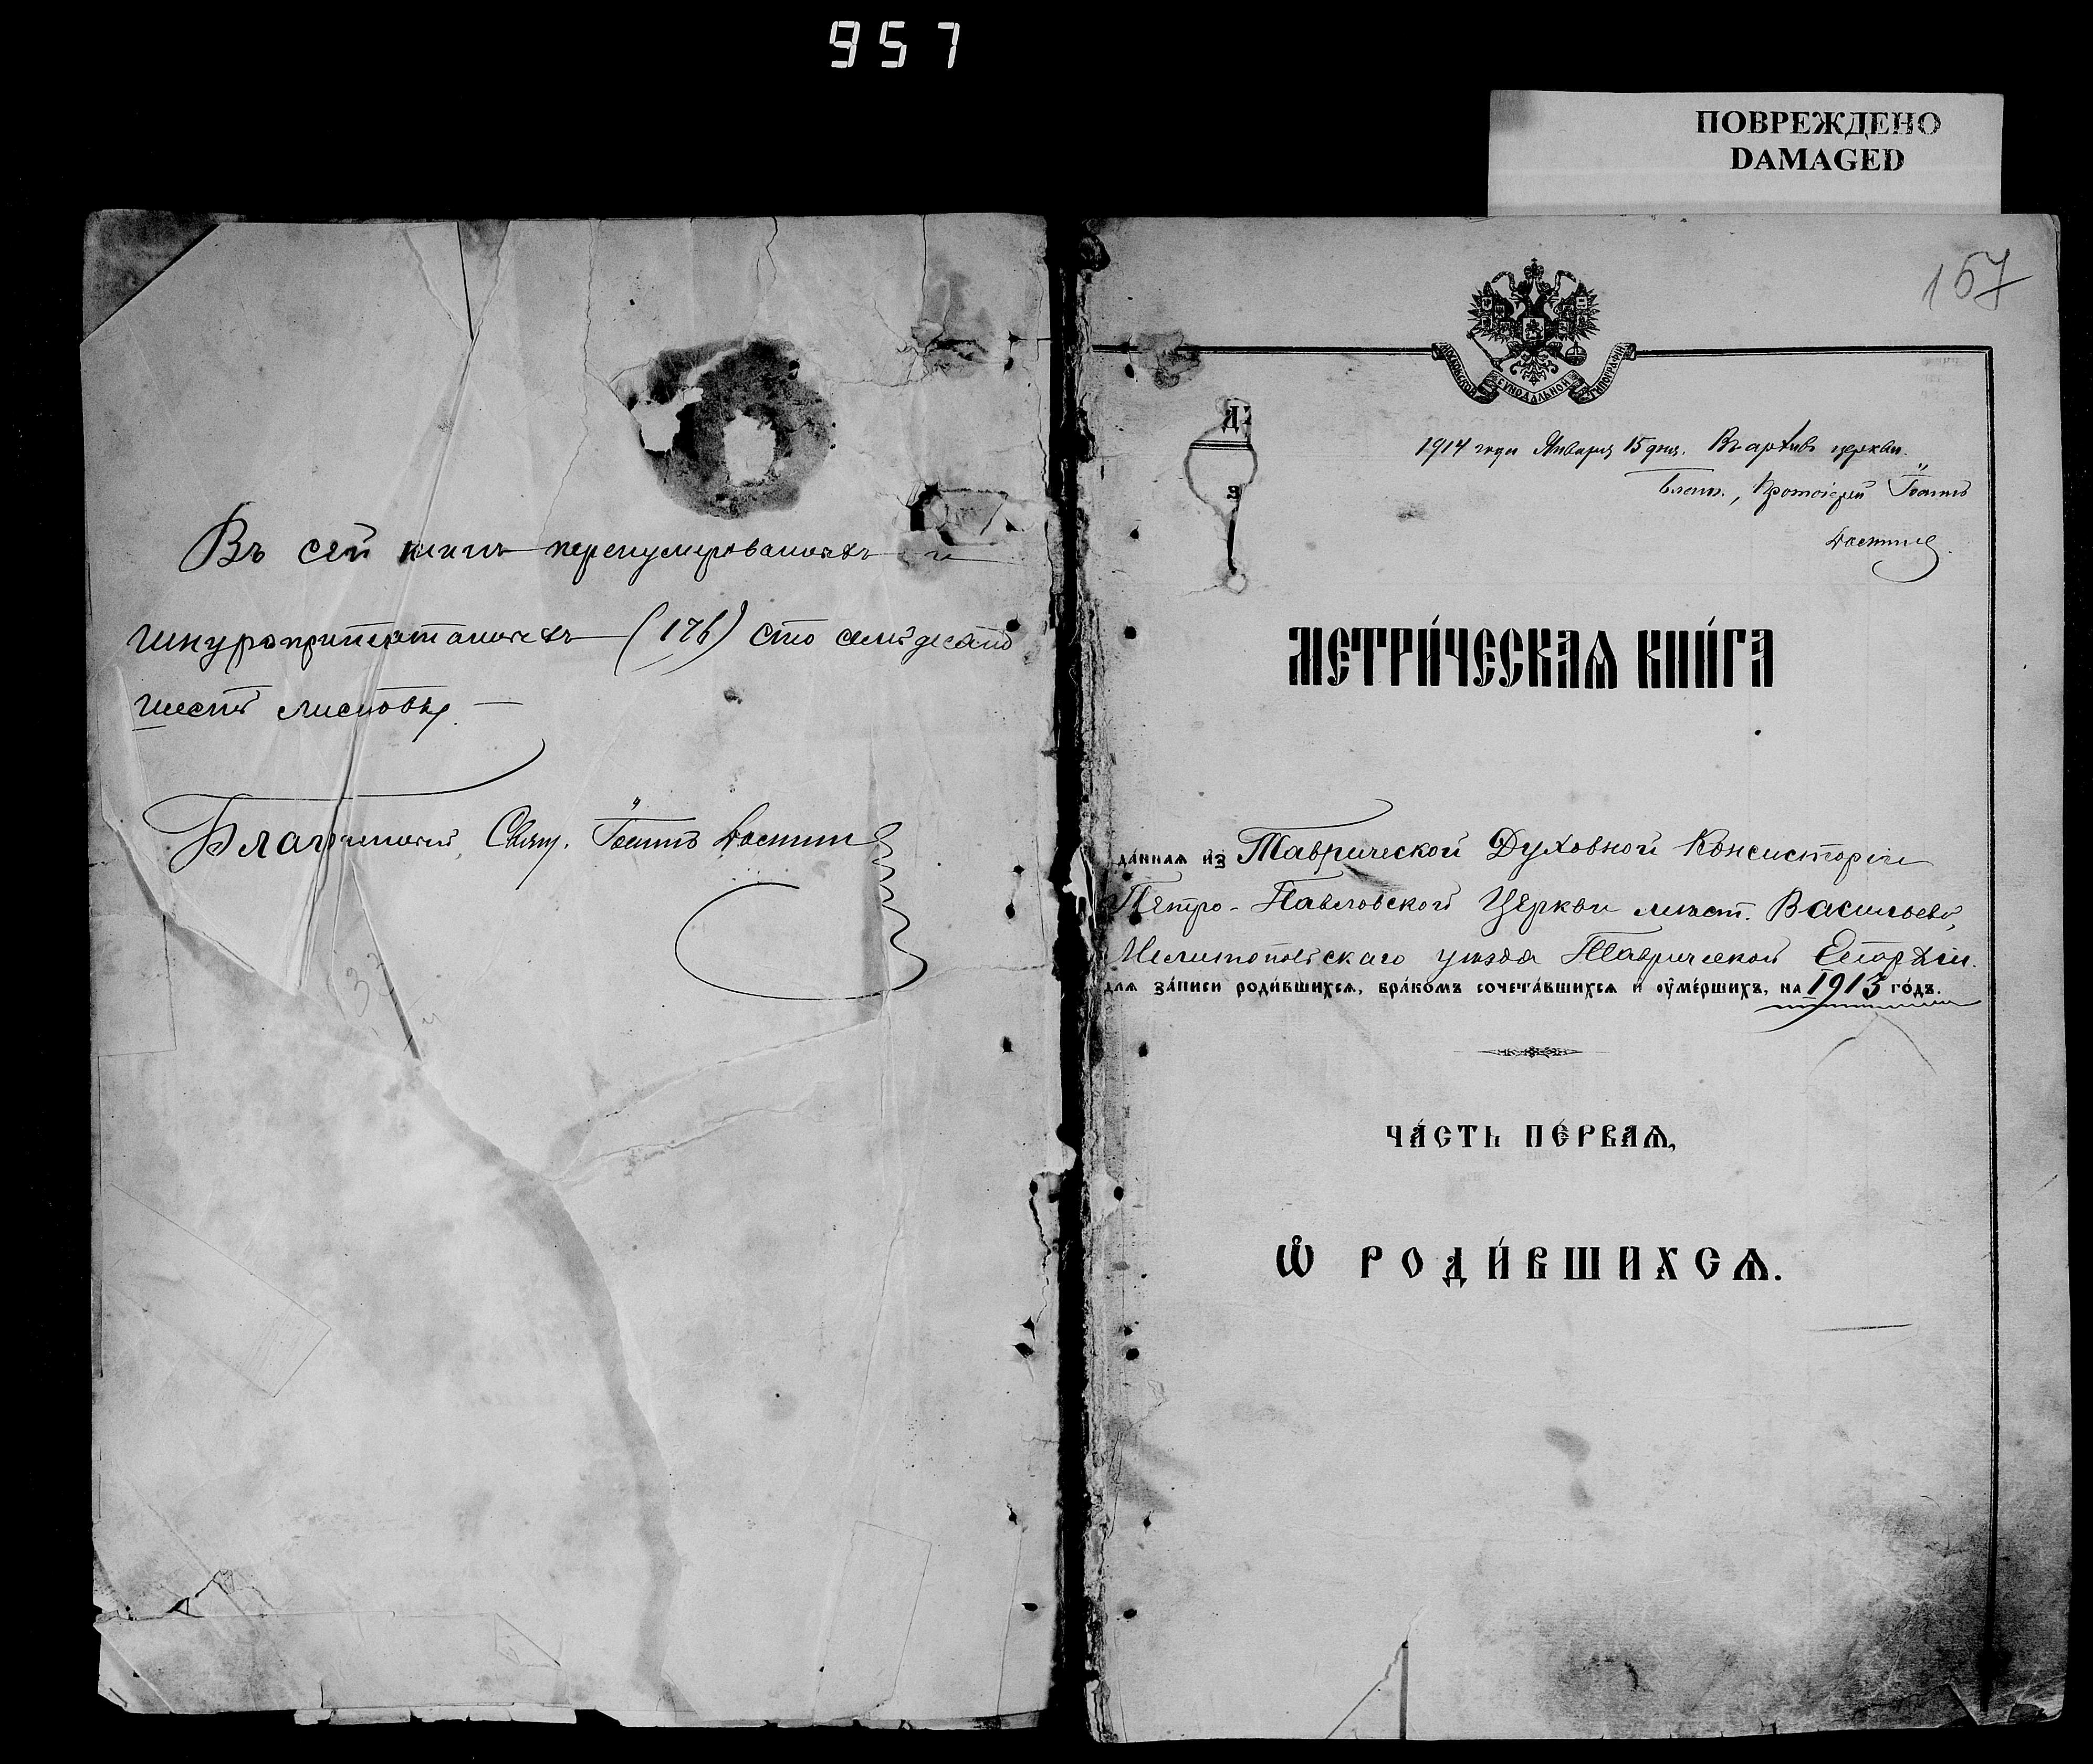 957
ПОВРЕЖДЕНО
DAMAGED
Въ сей книгѣ перенумерованныхъ и
шнуроприпечатанныхъ (176) сто семьдесятъ
шесть листовъ. —
Благочинный, Свящ. Іоаннъ
167
МОСКОВСКОЙ СѴНОДАЛЬНОЙ ТИПОГРАФІИ
1914 года Января 15 дня. Въ архивъ церкви.
Благоч., Протоіерей Іоаннъ
МЕТРИ́ЧЕСКАѦ КНИ́ГА
да́ннаѧ из Таврической Духовной Консисторіи
Петро-Павловской Церкви мѣст. Васильевки,
Мелитопольскаго уѣзда Таврической Епархіи.
для за́писи роди́вшихсѧ, бра́комъ сочета́вшихсѧ и оуме́ршихъ, на 1913 го́дъ.
ЧА́СТЬ ПЕ́РВАѦ,
Ѡ РОДИ́ВШИХСѦ.